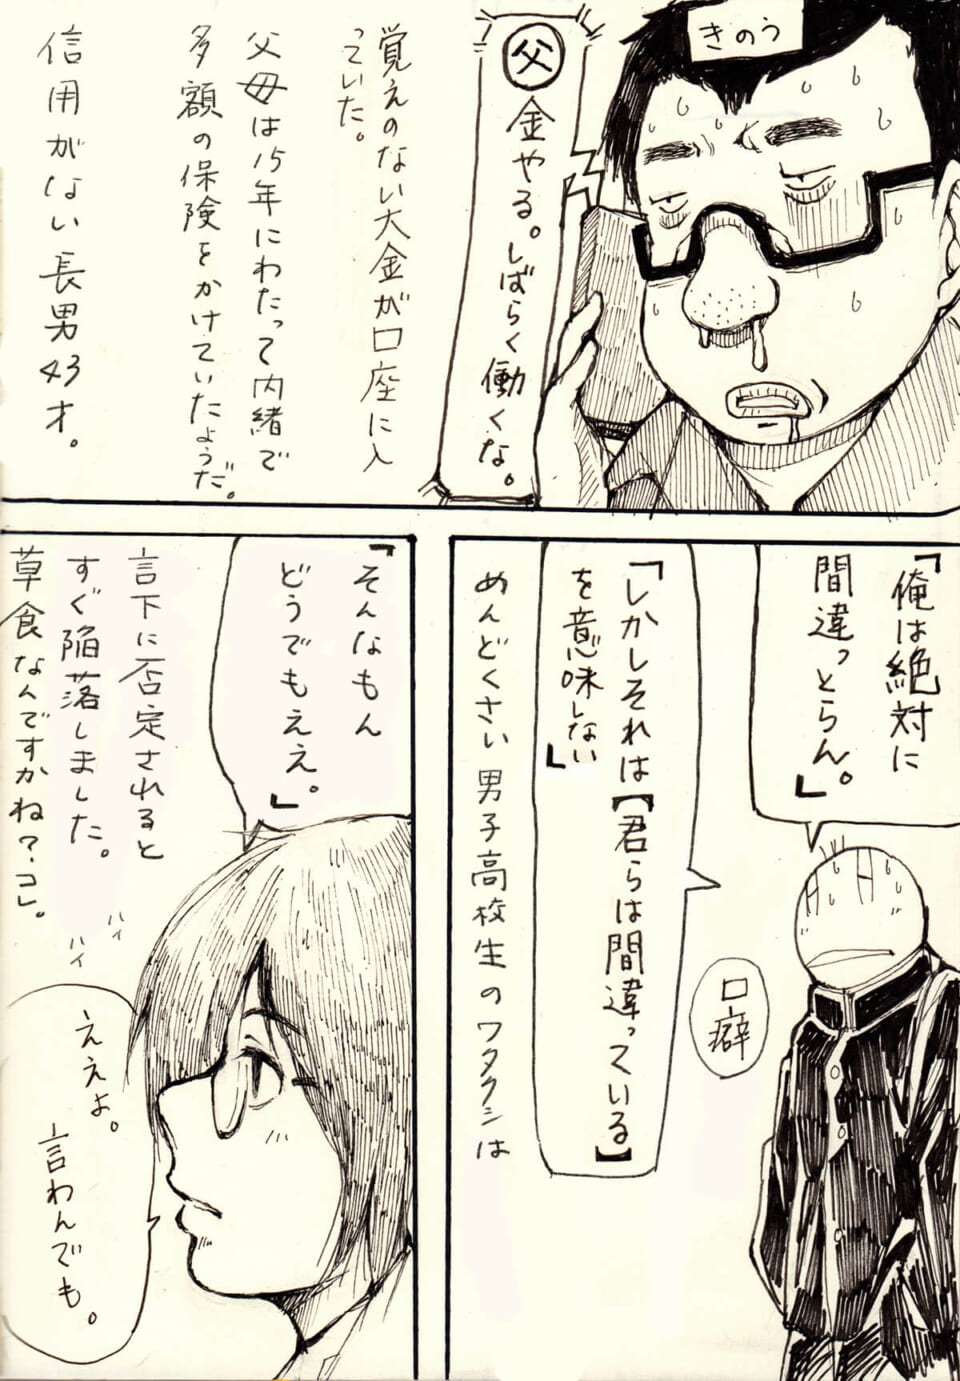 きのう
父 金やる。しばらく働くな。
覚えのない大金が口座に入
っていた。
父母は15年にわたって内緒で
多額の保険をかけていたようだ。
信用がない長男43才。
「俺は絶対に
間違っとらん。」
「しかしそれは【君らは間違っている】
を意味しない」
口癖
めんどくさい男子高校生のワタクシは
「そんなもん
どうでもええ。」
言下に否定されると
すぐ陥落しました。
草食なんですかね?コレ。
ハイ
ハイ
ええよ。
言わんでも。